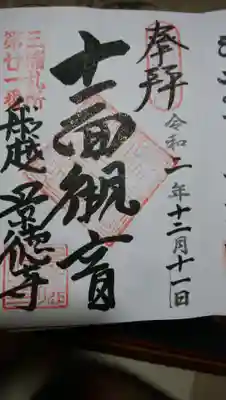 奉拝
令和二年十二月十一日
十一面観音
三浦札所
第廿一番
船越 景徳寺